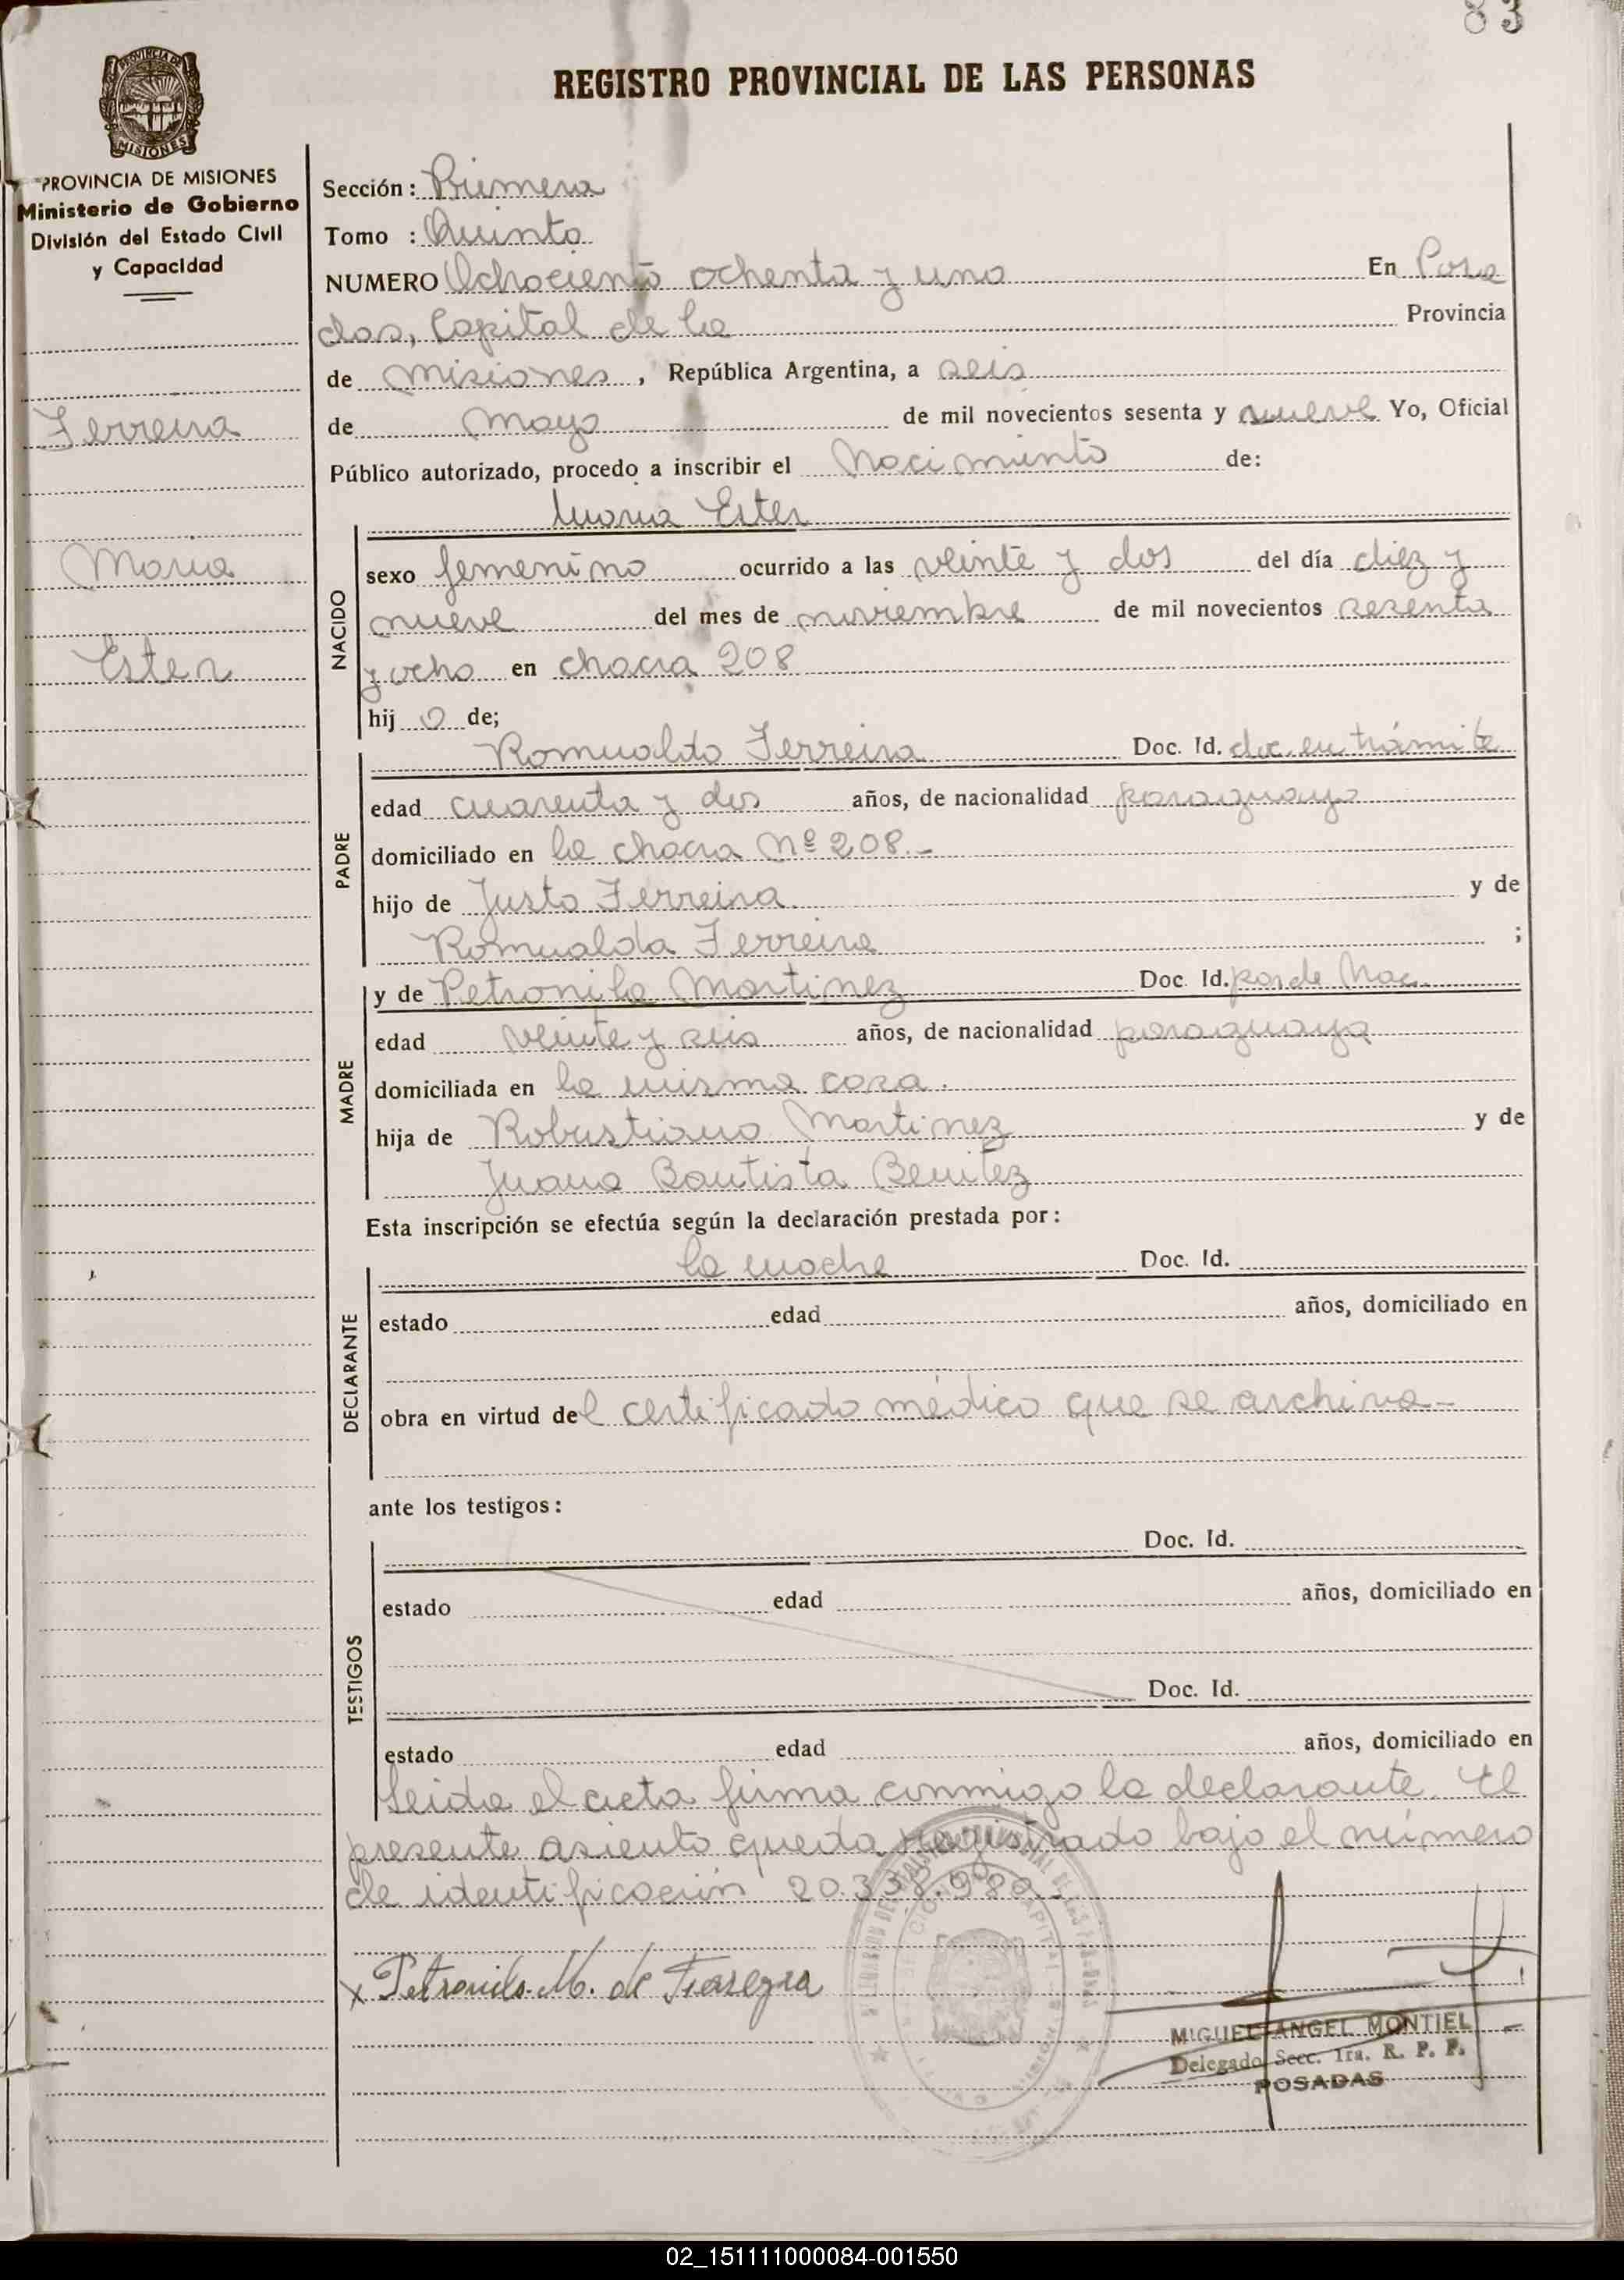 83
REGISTRO PROVINCIAL DE LAS PERSONAS
PROVINCIA DE MISIONES
MISIONES
PROVINCIA DE MISIONES
Ministerio de Gobierno
División del Estado Civil
y Capacidad
Ferreira
Maria
Ester
Sección: Primera
Tomo : Quinto
NUMERO Ochociento ochenta y uno En Posa
das, Capital de la Provincia
de Misiones, República Argentina, a seis
de Mayo de mil novecientos sesenta y nueve Yo, Oficial
Público autorizado, procedo a inscribir el Nacimiento de:
Maria Ester
NACIDO
sexo femenino ocurrido a las veinte y dos del día diez y
nueve del mes de noviembre de mil novecientos sesenta
y ocho en chacra 208
hij a de;
PADRE
Romualdo Ferreira Doc. Id. doc. en trámite
edad cuarenta y dos años, de nacionalidad paraguayo
domiciliado en la chacra Nº 208.-
hijo de Justo Ferreira y de
Romualda Ferreira ;
MADRE
y de Petronila Martinez Doc. Id. par de Nac.
edad veinte y seis años, de nacionalidad paraguaya
domiciliada en la misma casa.
hija de Robustiano Martinez y de
Juana Bautista Benitez
Esta inscripción se efectúa según la declaración prestada por:
DECLARANTE
la madre Doc. Id.
estado edad años, domiciliado en
obra en virtud del certificado médico que se archiva-
ante los testigos:
TESTIGOS
Doc. Id.
estado edad años, domiciliado en
Doc. Id.
estado edad años, domiciliado en
Leida el acta firma conmigo la declarante. El
presente asiento queda registrado bajo el número
de identificación 20.338.980.
x Petronila M. de
MIGUEL ANGEL MONTIEL
Delegado Secc. 1ra. R. P. P.
POSADAS
02_151111000084-001550